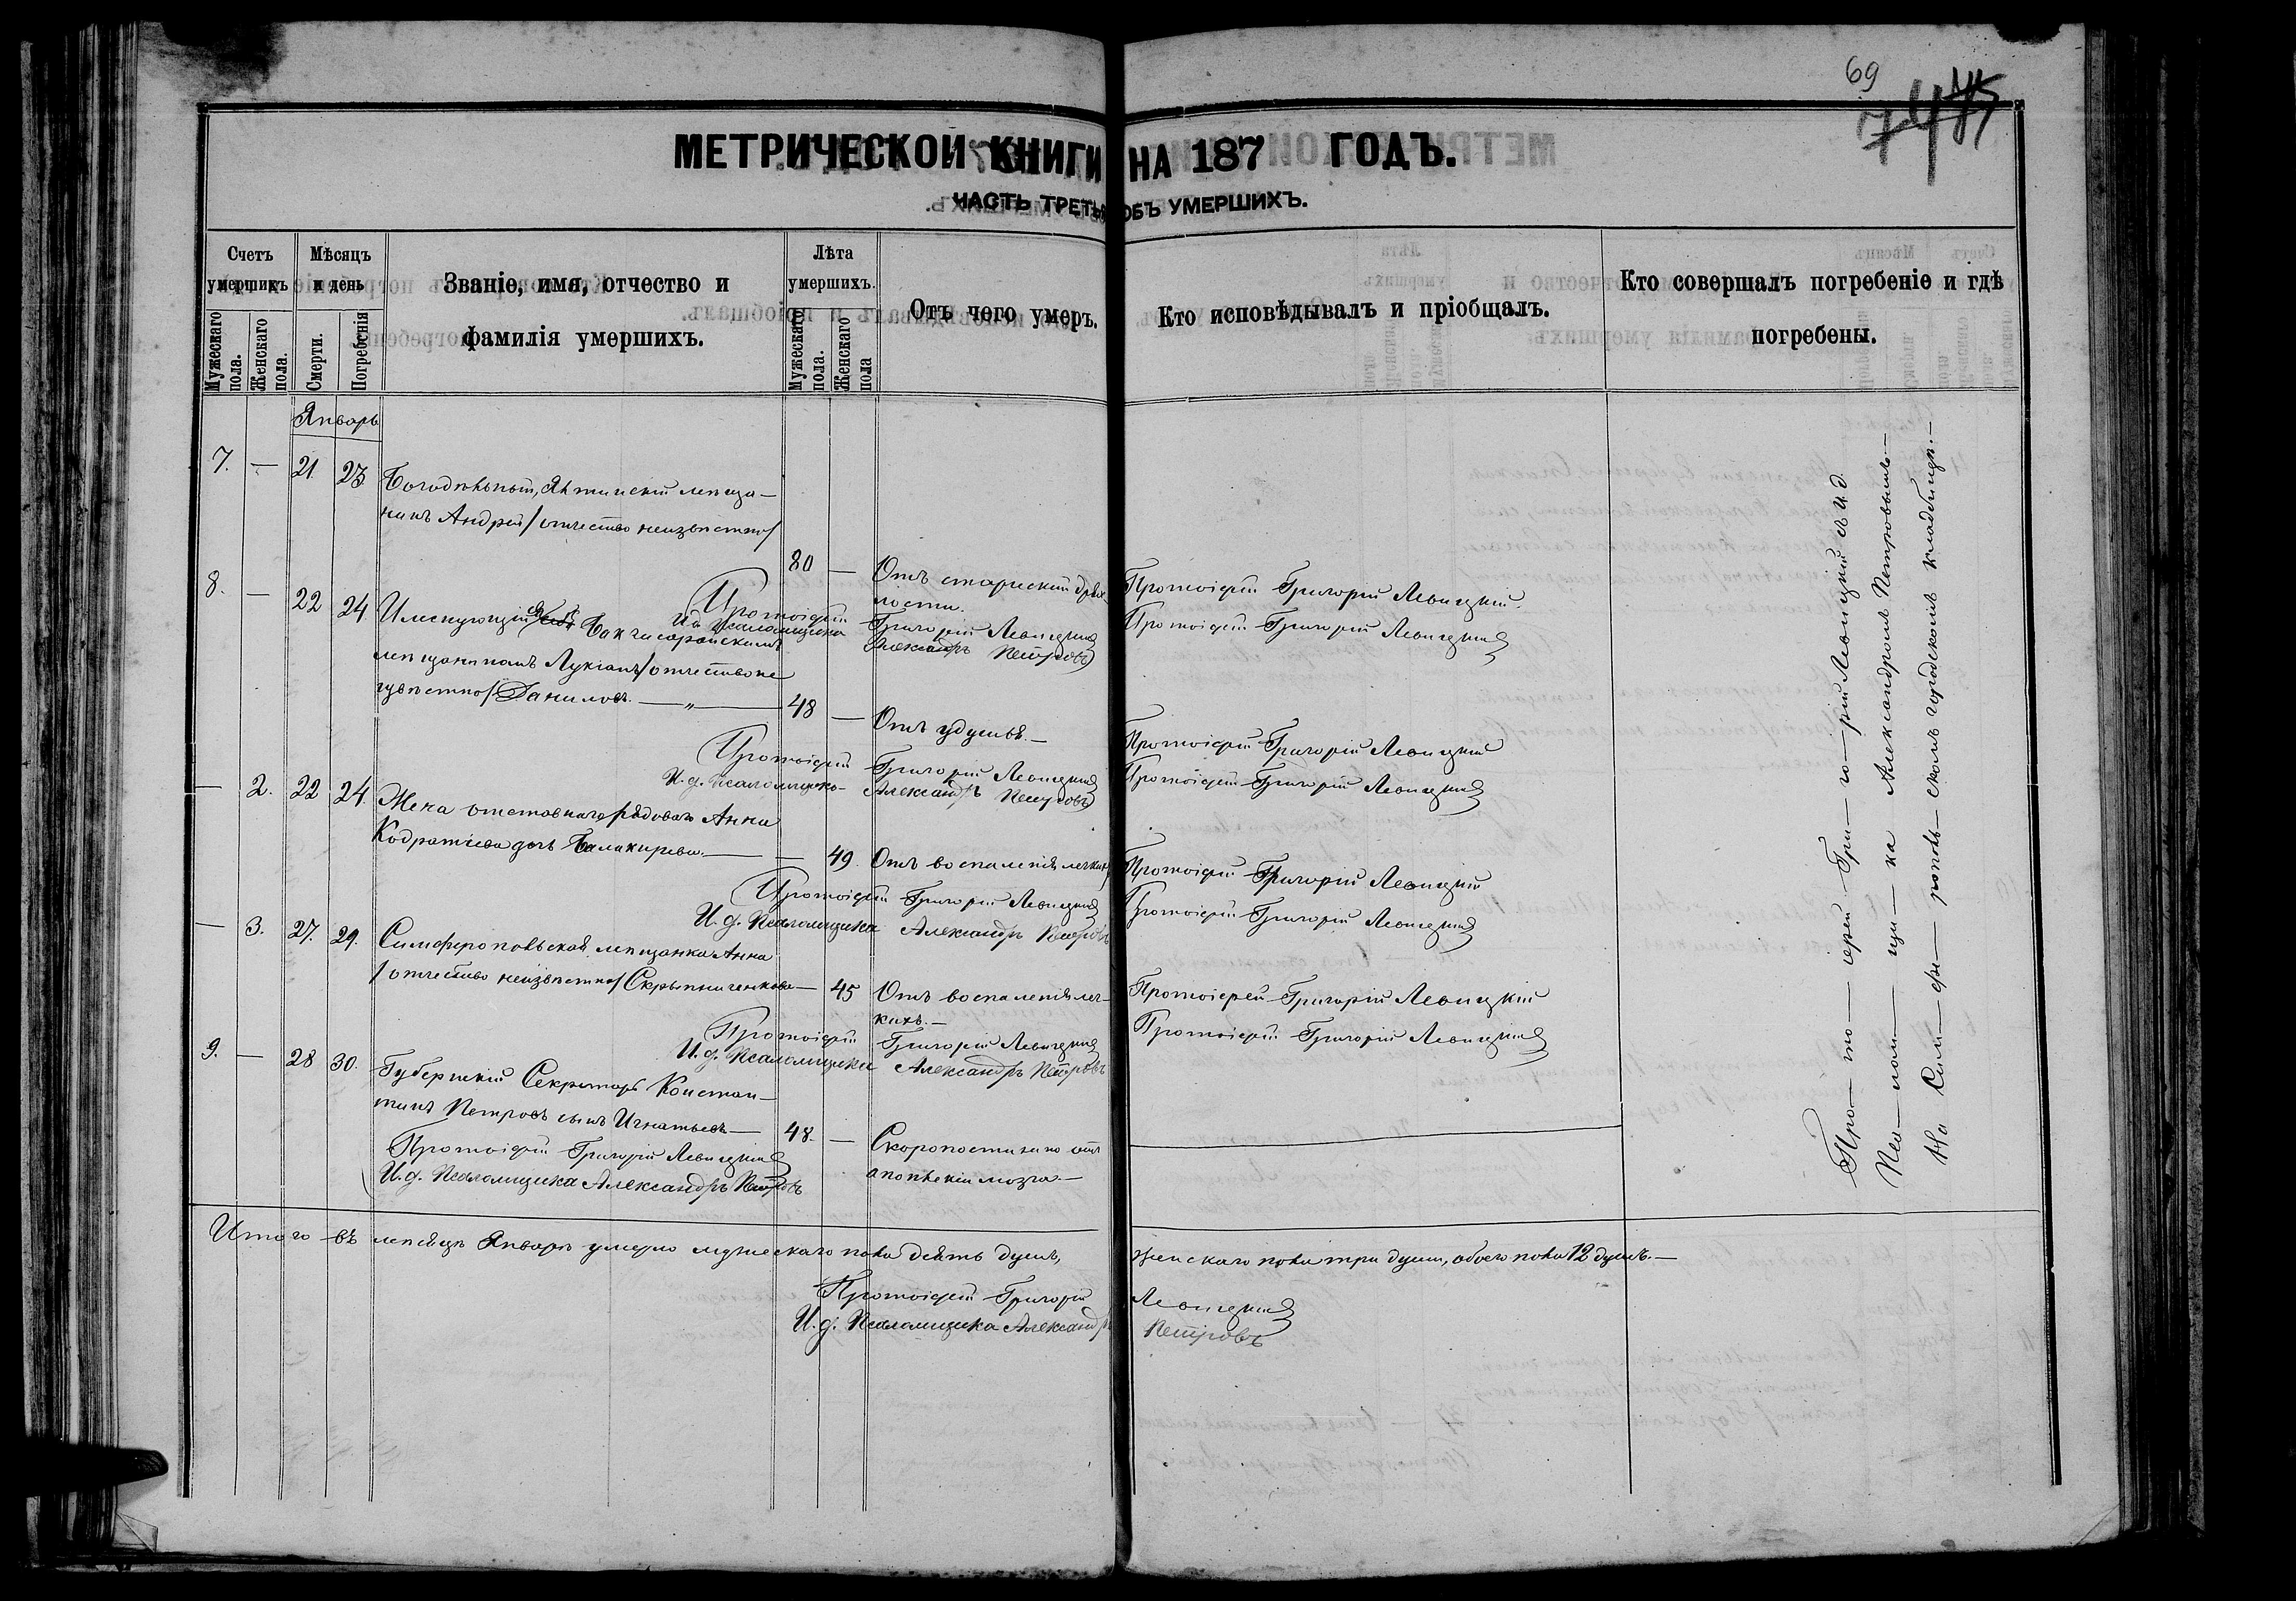 69
МЕТРИЧЕСКОЙ КНИГИ НА 187 ГОДЪ.
ЧАСТЬ ТРЕТЬЯ ОБЪ УМЕРШИХЪ.
Счетъ умершихъ
Мужескаго пола.
Женскаго пола.
Мѣсяцъ и день
Смерти.
Погребенія
Званіе, имя, отчество и
фамилія умершихъ.
Лѣта умершихъ.
Мужескаго пола.
Женскаго пола
Отъ чего умеръ.
Кто исповѣдывалъ и пріобщалъ.
Кто совершалъ погребеніе и гдѣ
погребены.
Январь
7. — 21 23 мѣща-
нинъ Андрей /отчество неизвѣстно/
80 — Отъ старческой дрях-
лости.
Протоіерей Григорій Левицкій.
Протоіерей Григорій Левицкій
И.д. Псаломщика Александръ Петровъ
Протоіерей Григорій Левицкій
8. — 22 24. Именующійся Бахчисарайскимъ
мѣщаниномъ Лукіанъ /отчество не
извѣстно/ Даниловъ. — " —
48 — Отъ удушья. —
Протоіерей Григорій Левицкій
Протоіерей Григорій Левицкій
И.д. Псаломщика Александръ Петровъ
Протоіерей Григорій Левицкій
— 2. 22 24. Жена отставнаго рядоваго Анна
Кодратіева дочь Балакирева. —
— 49. Отъ воспаленія легкихъ
Протоіерей Григорій Левицкій
Протоіерей Григорій Левицкій
И.д. Псаломщика Александръ Петровъ
Протоіерей Григорій Левицкій
— 3. 27. 29. Симферопольская мѣщанка Анна
/отчество неизвѣстно/ Скрыпниченкова —
45 Отъ воспаленія лег-
кихъ. —
Протоіерей Григорій Левицкій
Протоіерей Григорій Левицкій
И.д. Псаломщика Александръ Петровъ
Протоіерей Григорій Левицкій
9. — 28 30. Губернскій Секретарь Констан-
тинъ Петровъ сынъ Игнатьевъ —
48. — Скоропостижно отъ
мозга. —
Протоіерей Григорій Левицкій
И.д. Псаломщика Александръ Петровъ
Про — то — іерей Гри — го — рій Левицкій съ И.д.
Пса — лом — щи — ка Александромъ Петровымъ —
На Сим — фе — ропо — скомъ городскомъ кладбищѣ. —
Итого въ мѣсяцѣ Январѣ умерло мужескаго пола девять душъ, женскаго пола три души, обоего пола 12 душъ. —
Протоіерей Григорій Левицкій
И.д. Псаломщика Александръ Петровъ